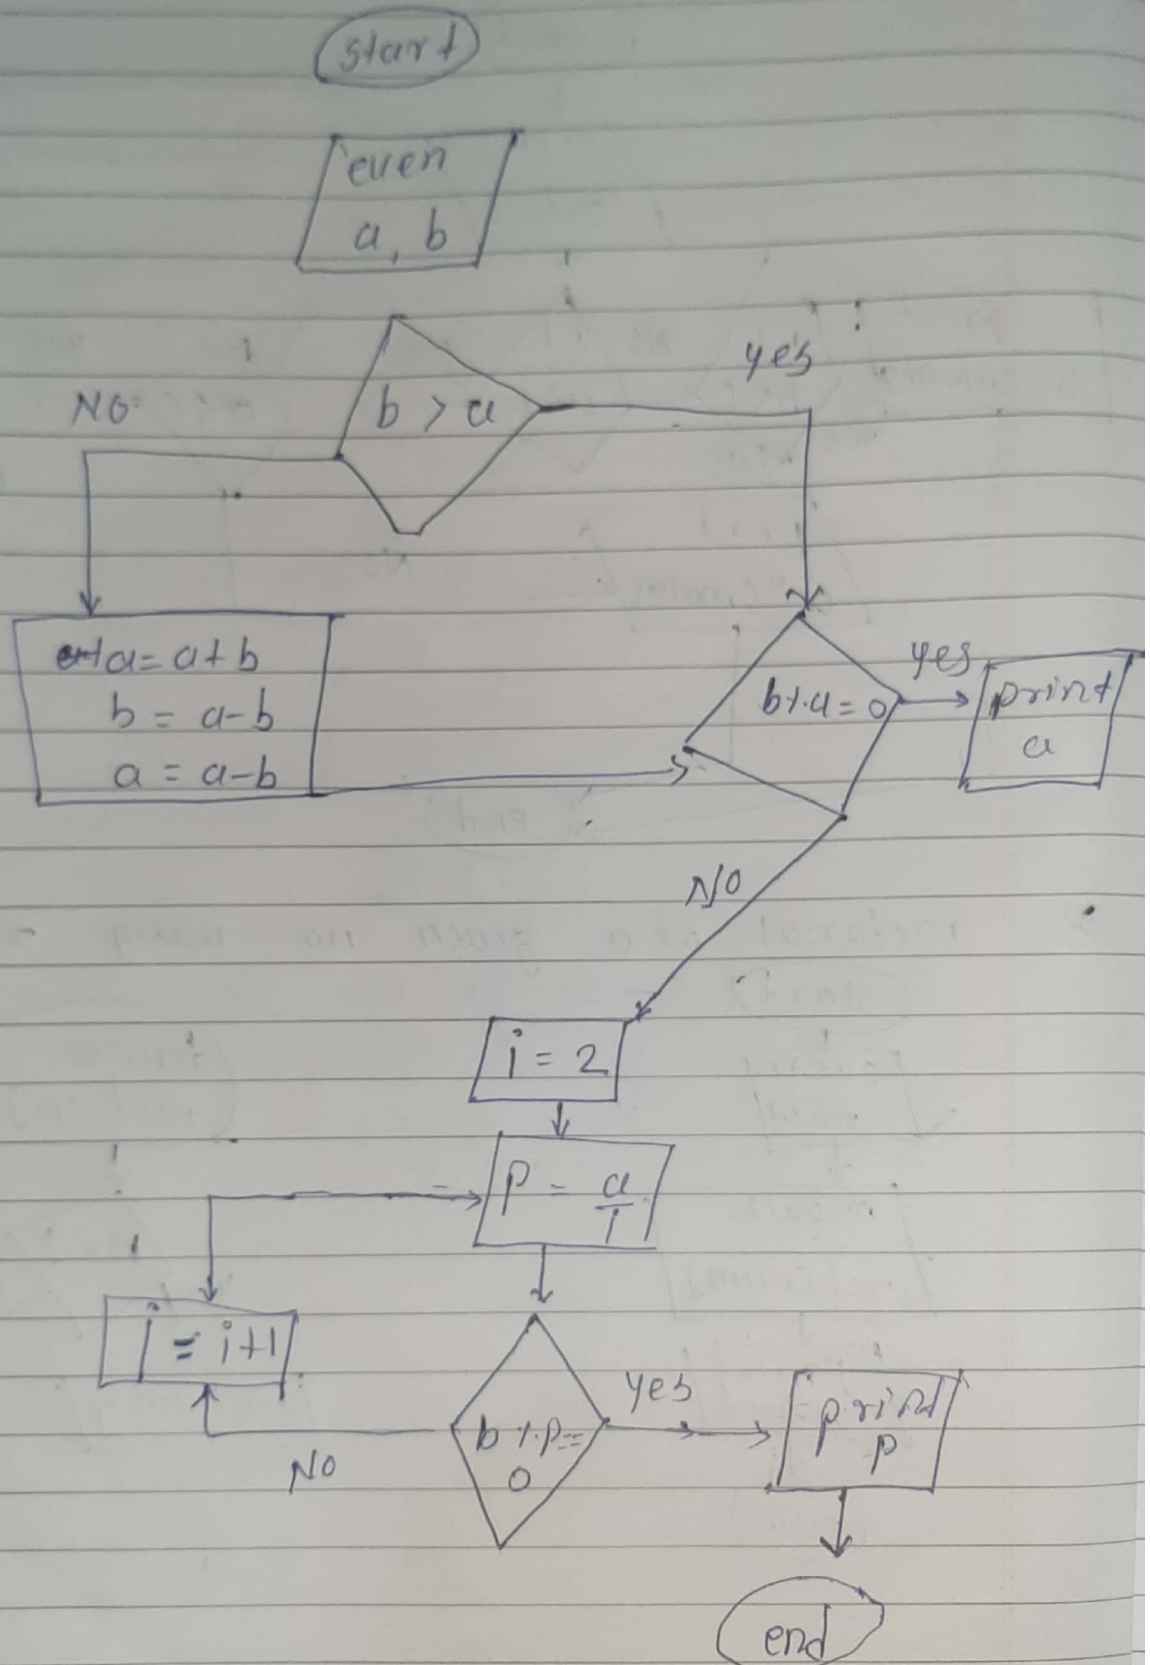 start
even
a, b
b > a
yes
NO
a = a+b
b = a-b
a = a-b
b%a = 0
yes
print
a
NO
i = 2
P = a/i
i = i+1
b % p ==
0
yes
NO
print
p
end